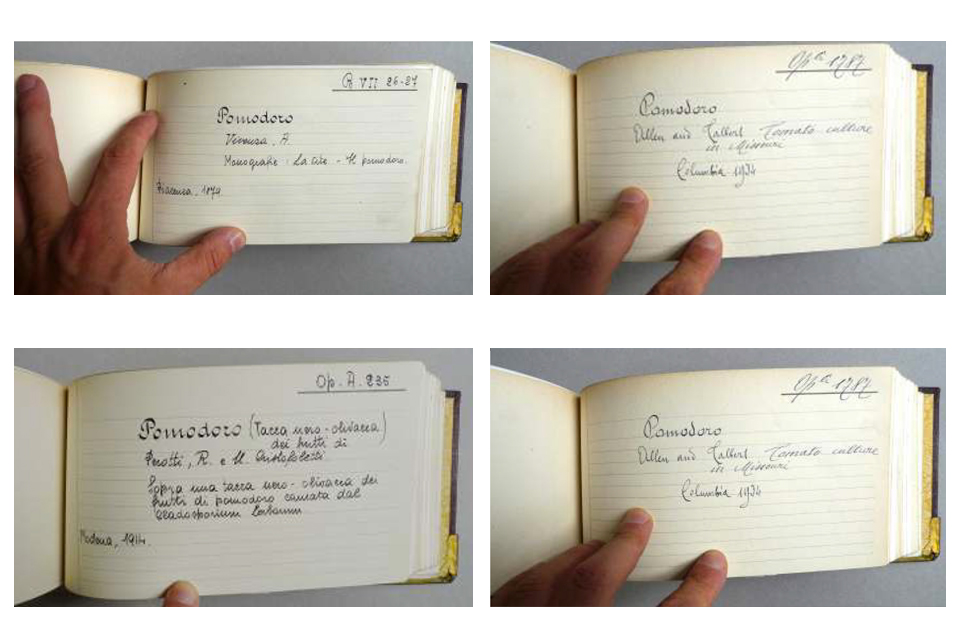 R VII 26-27
Pomodoro
Vinusa, A.
Monografie: La vite - Il pomodoro.
Piacenza, 1879
Op. 1787
Pomodoro
and Talbert Tomato culture
in Missouri
Columbia 1934
Op. A. 235
Pomodoro (Tacca nero-olivacea)
dei frutti di
Perotti, R. e M. Cristofoletti
Sopra una tacca nero-olivacea dei
frutti di pomodoro causata dal
Cladosporium
Modena, 1914.
Op. 1787
Pomodoro
and Talbert Tomato culture
in Missouri
Columbia 1934